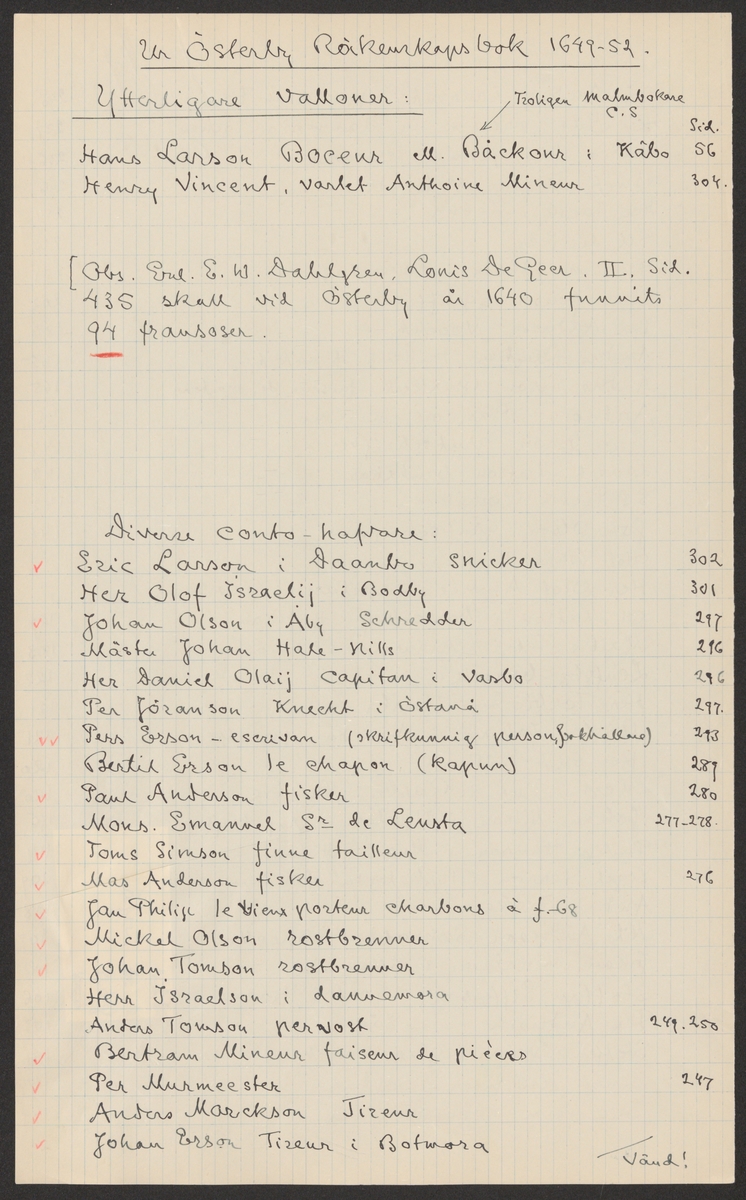 Ur Österby Räkenskapsbok 1649-52.
Ytterligare Valloner:
Troligen Malmbokare
C.S
Sid.
Hans Larson Boceur el. Båckour i Kåbo 56
Henry Vincent, varlet Anthoine Mineur 304.
[Obs. Enl. E. W. Dahlgren, Louis De Geer, II, Sid.
435 skall vid Österby år 1640 funnits
94 fransoser.
Diverse conto-hafvare:
✓ Eric Larson i Daanbo Snicker 302
Her Olof Israelij i Bodby 301
✓ Johan Olson i Åby Schredder 297
Mäster Johan Hale-Nills 296
Her Daniel Olaij Capitan i Vasbo 296
Per Jöranson Knecht i Östanå 297.
✓✓ Pers Erson - escrivan (skrifkunnig person, bokhållare) 293
Bertil Erson le chapon (kapun) 289
✓ Paul Anderson fisker 280
Mons. Emanuel Sr de Leusta 277-278.
✓ Toms Simson finne tailleur
✓ Mas Anderson fisker 276
✓ Jan Philip le vieux porteur charbons à f.-68
✓ Mickel Olson rostbrenner
✓ Johan Tomson rostbrenner
Herr Israelson i dannemora
Anders Tomson pervost 249.250
✓ Bertram Mineur faiseur de pièces
✓ Per Murmeester 247
✓ Anders Marckson Tireur
✓ Johan Erson Tireur i Botmora
Vänd!